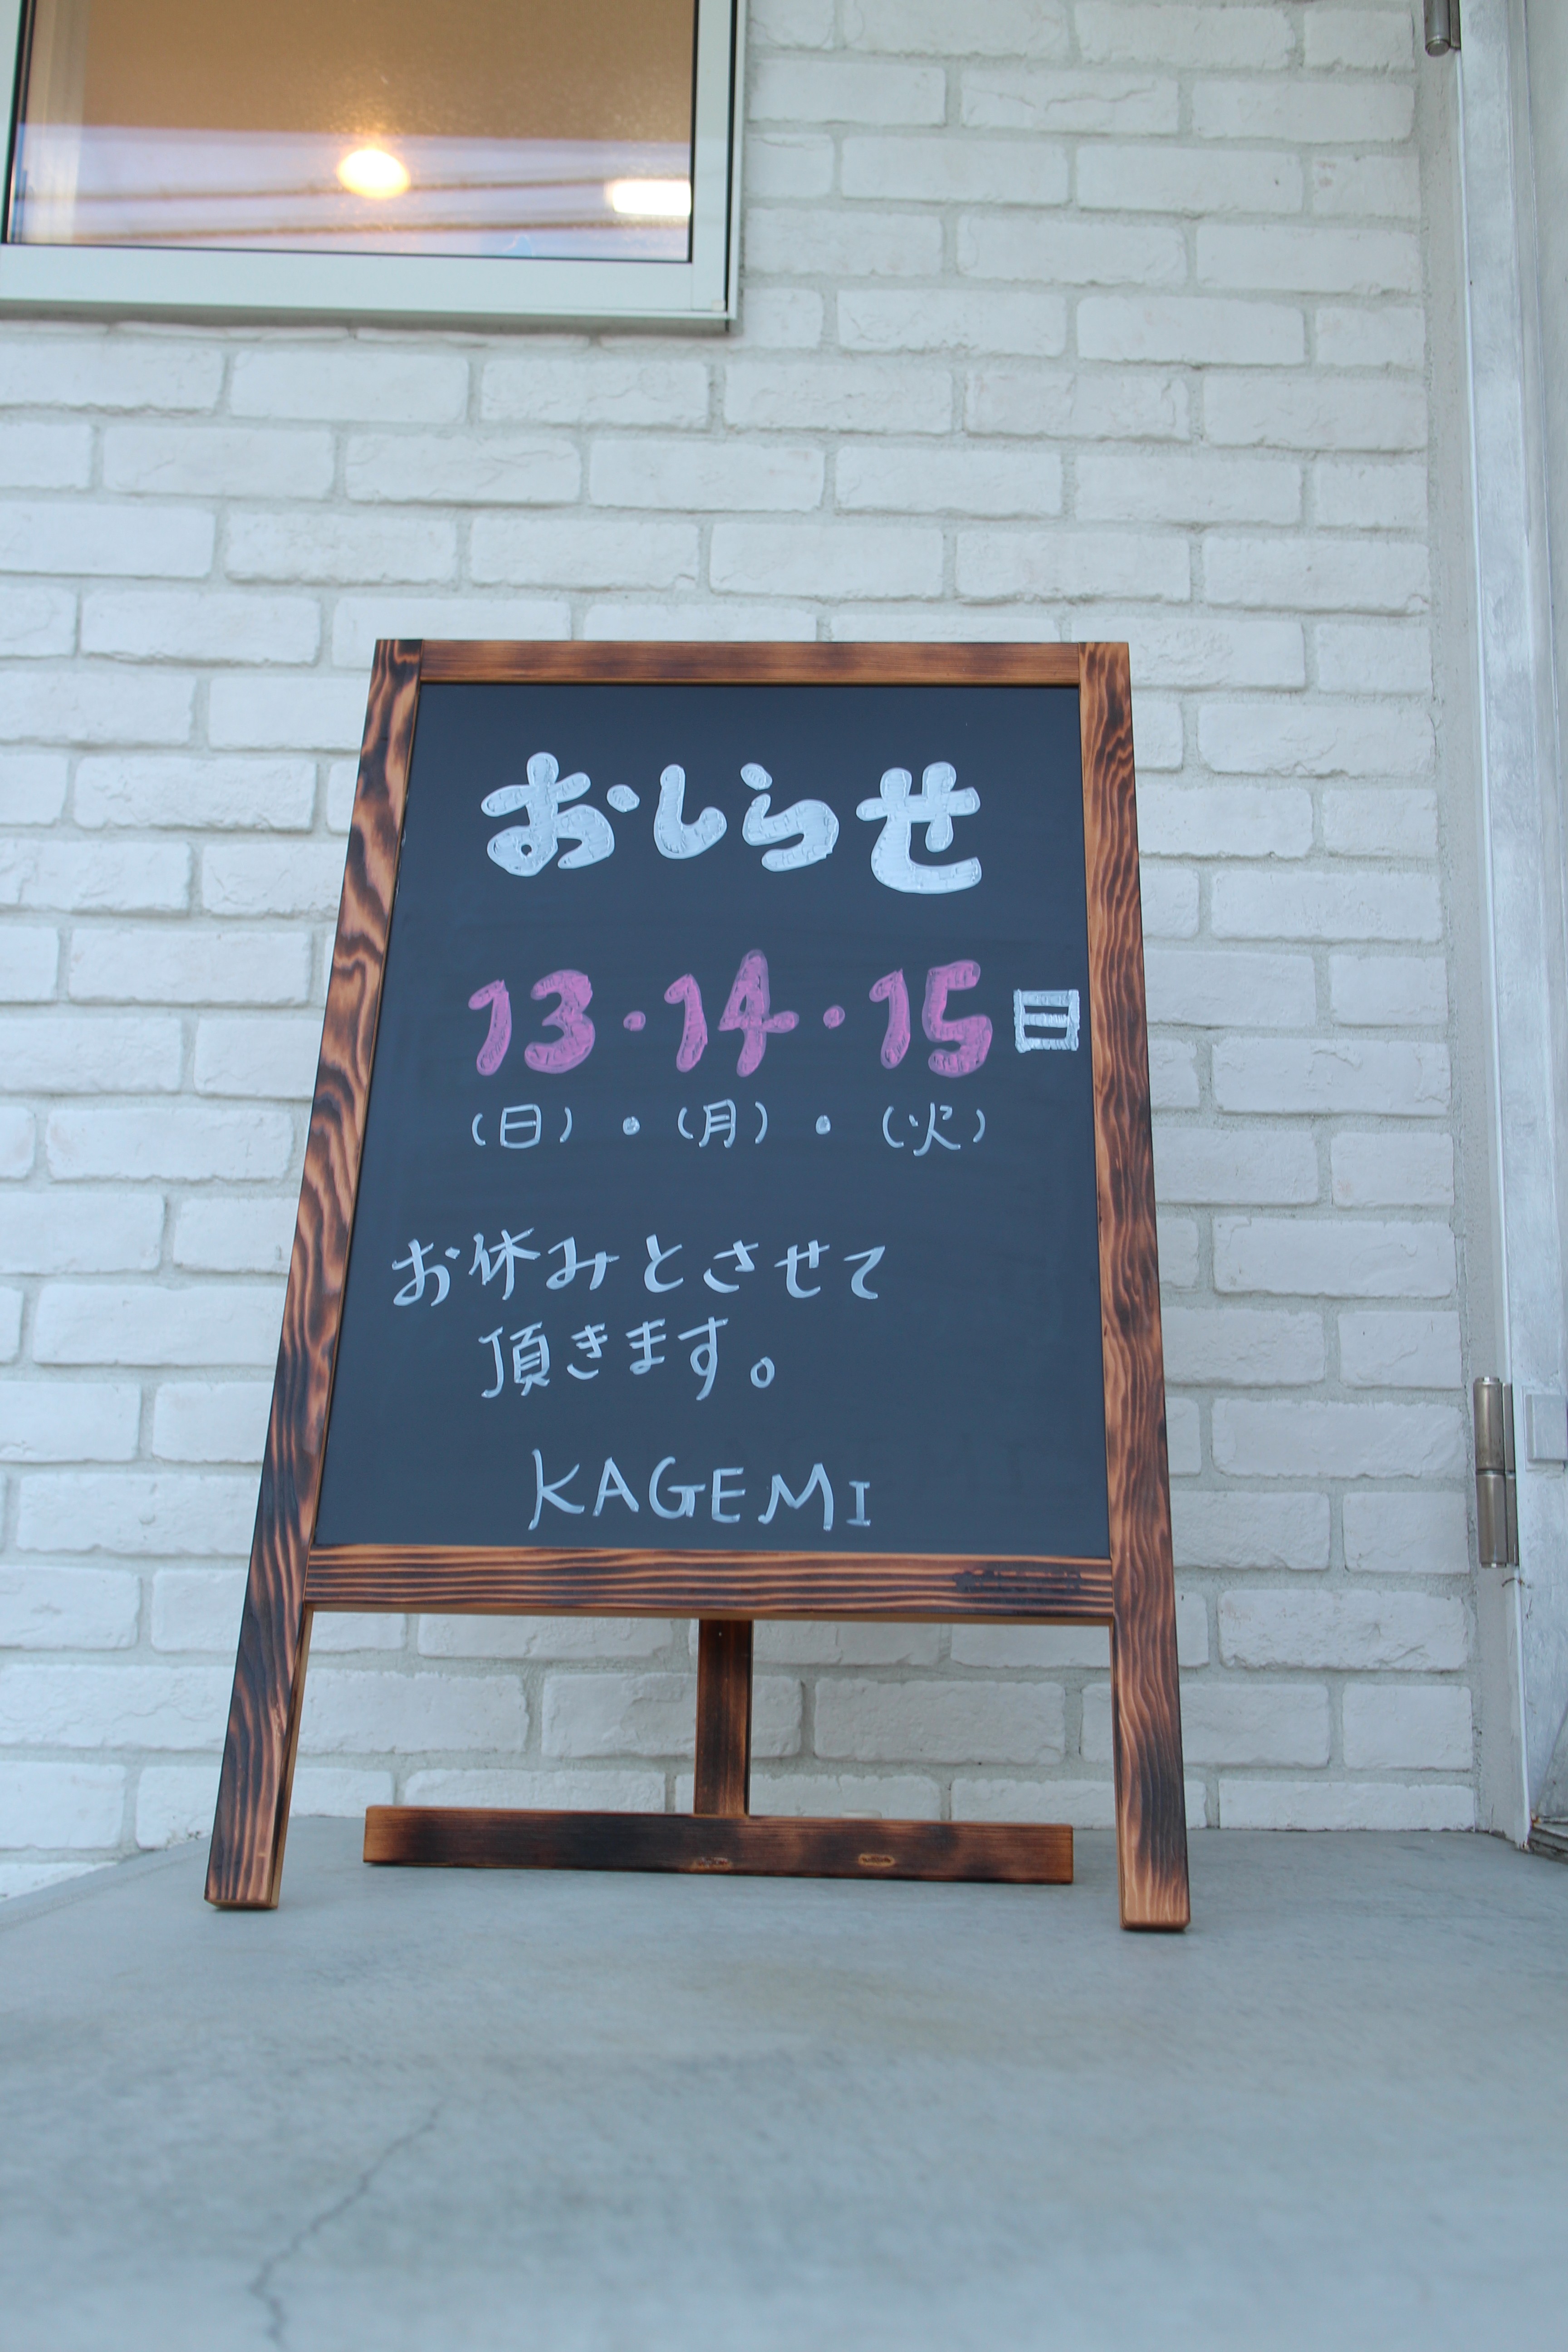 おしらせ
13・14・15日
(日)・(月)・(火)
お休みとさせて
頂きます。
KAGEMI